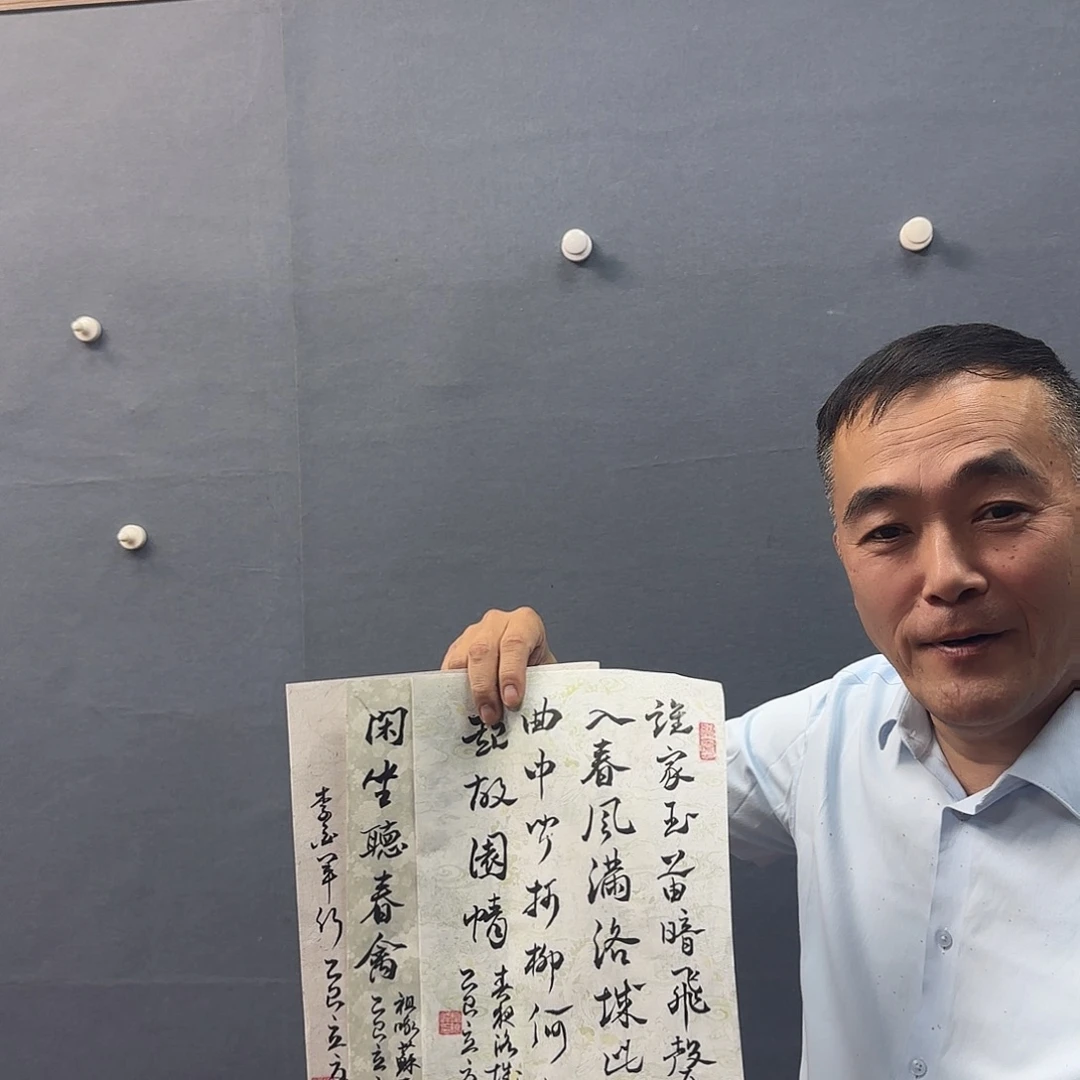 誰家玉笛暗飛聲
入春風滿洛城此
曲中聞折柳何
起故園情
春夜洛城
乙巳立
閑坐聽春禽
祖詠蘇
乙巳立
行
乙巳立